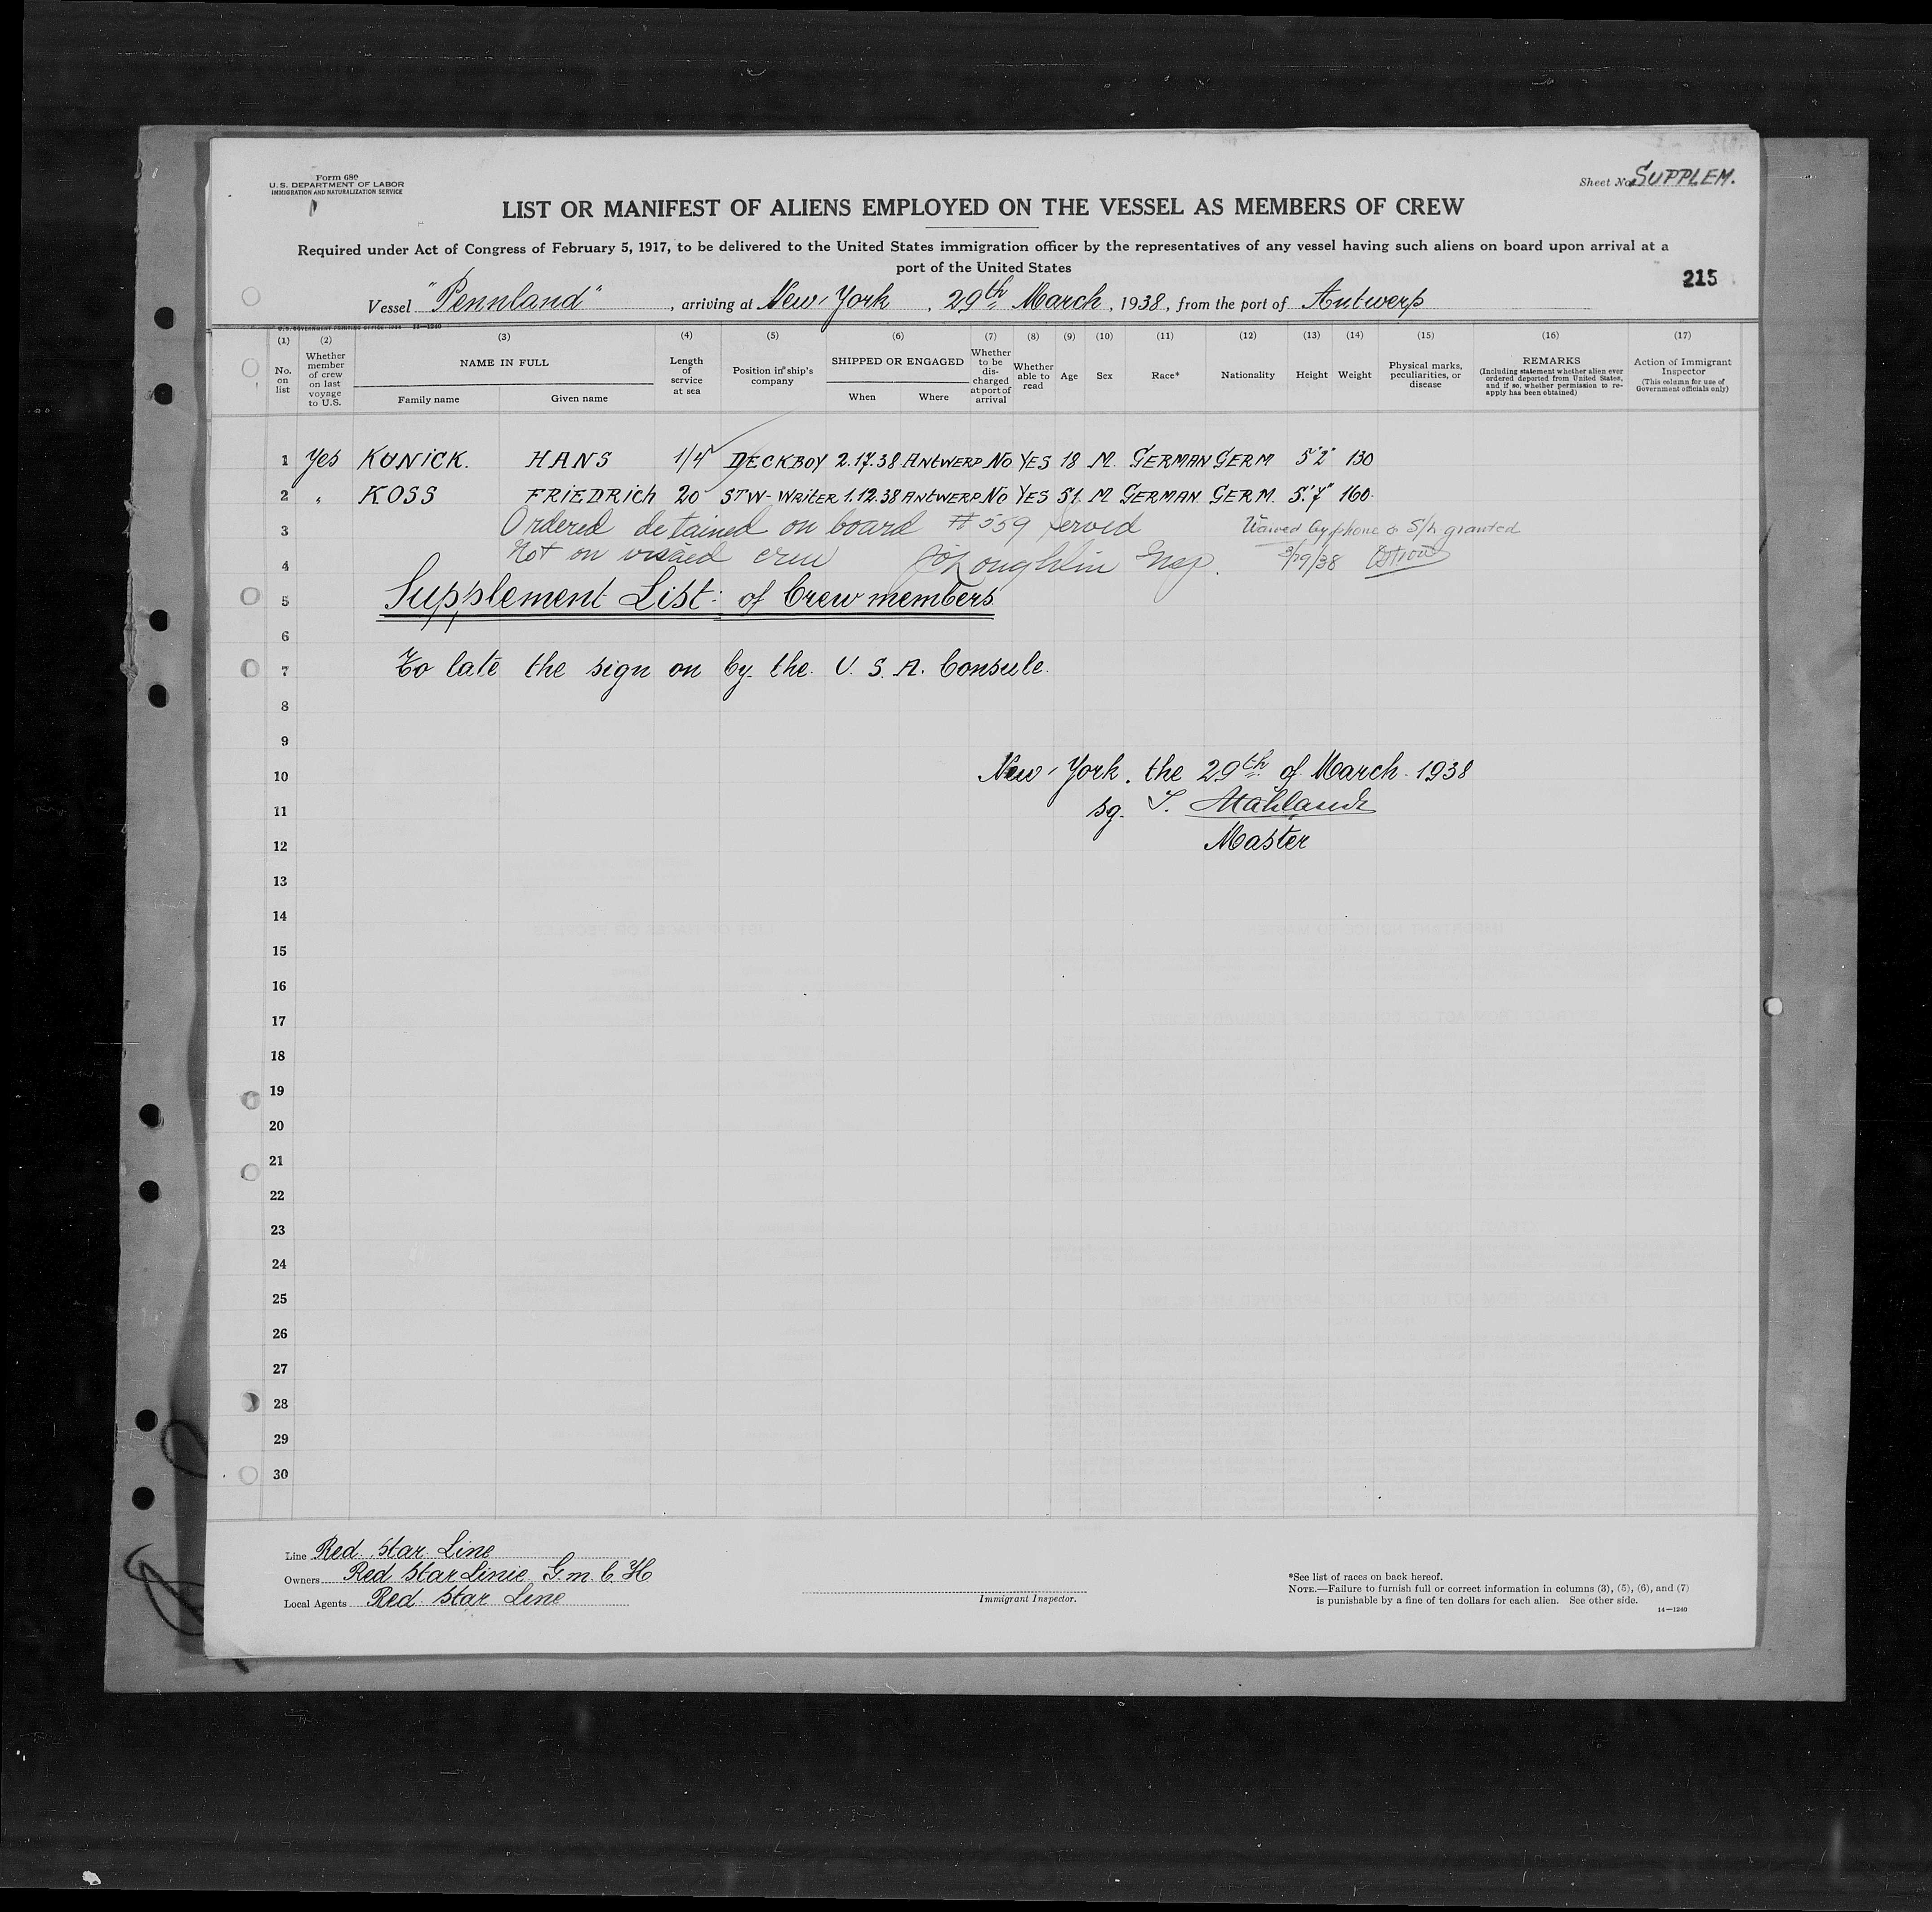 Form 680
U. S. DEPARTMENT OF LABOR
IMMIGRATION AND NATURALIZATION SERVICE
Sheet No. SUPPLEM.
LIST OR MANIFEST OF ALIENS EMPLOYED ON THE VESSEL AS MEMBERS OF CREW
Required under Act of Congress of February 5, 1917, to be delivered to the United States immigration officer by the representatives of any vessel having such aliens on board upon arrival at a
port of the United States
215
Vessel "Pennland", arriving at New-York, 29th March, 1938, from the port of Antwerp
(1) (2) (3) (4) (5) (6) (7) (8) (9) (10) (11) (12) (13) (14) (15) (16) (17)
No. on list
Whether member of crew on last voyage to U.S.
NAME IN FULL
Family name
Given name
Length of service at sea
Position in ship's company
SHIPPED OR ENGAGED
When
Where
Whether to be discharged at port of arrival
Whether able to read
Age
Sex
Race*
Nationality
Height
Weight
Physical marks, peculiarities, or disease
REMARKS
(Including statement whether alien ever ordered deported from United States, and if so, whether permission to re-apply has been obtained)
Action of Immigrant Inspector
(This column for use of Government officials only)
1 Yes KUNICK. HANS 1/4 DECKBOY 2.17.38 ANTWERP NO YES 18 M. GERMAN GERM 5'2" 130
2 " KOSS FRIEDRICH 20 STW-WRITER 1.12.38 ANTWERP NO YES 51 M GERMAN GERM. 5'.7" 160.
3 Ordered detained on board #559 served Waived by phone S/L granted
4 Not on visaed crew O'Loughlin Insp. 3/29/38
5 Supplement List: of Crew members
6
7 To late the sign on by the U. S. A. Consule.
8
9
10 New-York, the 29th of March. 1938
11 sg.
12 Master
13
14
15
16
17
18
19
20
21
22
23
24
25
26
27
28
29
30
Line Red Star Line
Owners Red Star Linie G.m.b.H
Local Agents Red Star Line
Immigrant Inspector.
*See list of races on back hereof.
NOTE.—Failure to furnish full or correct information in columns (3), (5), (6), and (7)
is punishable by a fine of ten dollars for each alien. See other side.
14—1240